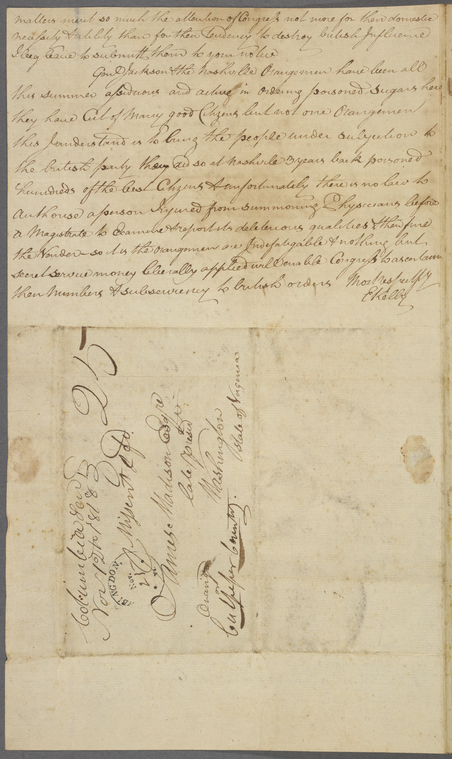 matters merit so much the attention of Congress not more for their domestic
necessity & utility than for their tendency to destroy british Influence
I beg leave to submit them to your notice
Genl Jackson & the Nashville Orangemen have been all
this summer assiduous and active in ordering poisoned Sugars here
they have Cut of Many good Citizens but not one Orangeman
this I understand is to bring the people under subjection to
the british party they did so at Nashville 3 years back poisoned
hundreds of the best Citizens & unfortunately there is no law to
Authorise a person Injured from summoning Physicians before
a Magistrate to Examine & report its deleterious qualities & then fine
the Vendor so it is the Orangemen are Indefatigable & nothing but
secret service money liberally applied will enable Congress to ascertain
their Numbers & subserviency to british orders Most respectfy
EKelly
Columbia
Nov 12th 1818
25
NOV
Missent & ffd.
James Madison Esqre
late Presdt
Washington
Orange
Culpeper County. State of Virginia